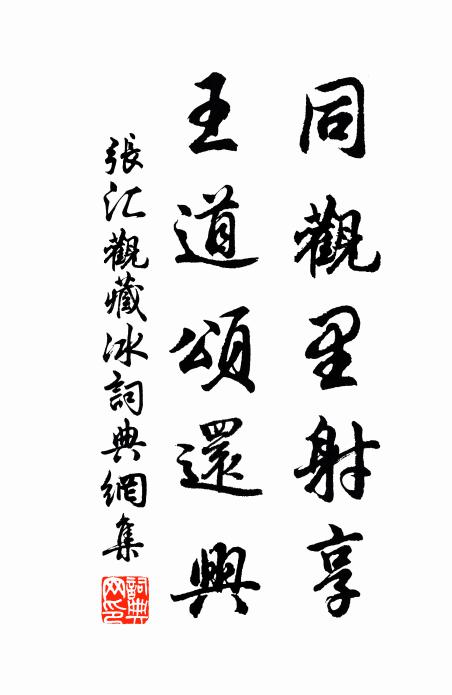 同觀里射享
王道頌還興
張汇觀藏冰詞典網集
詞典网印